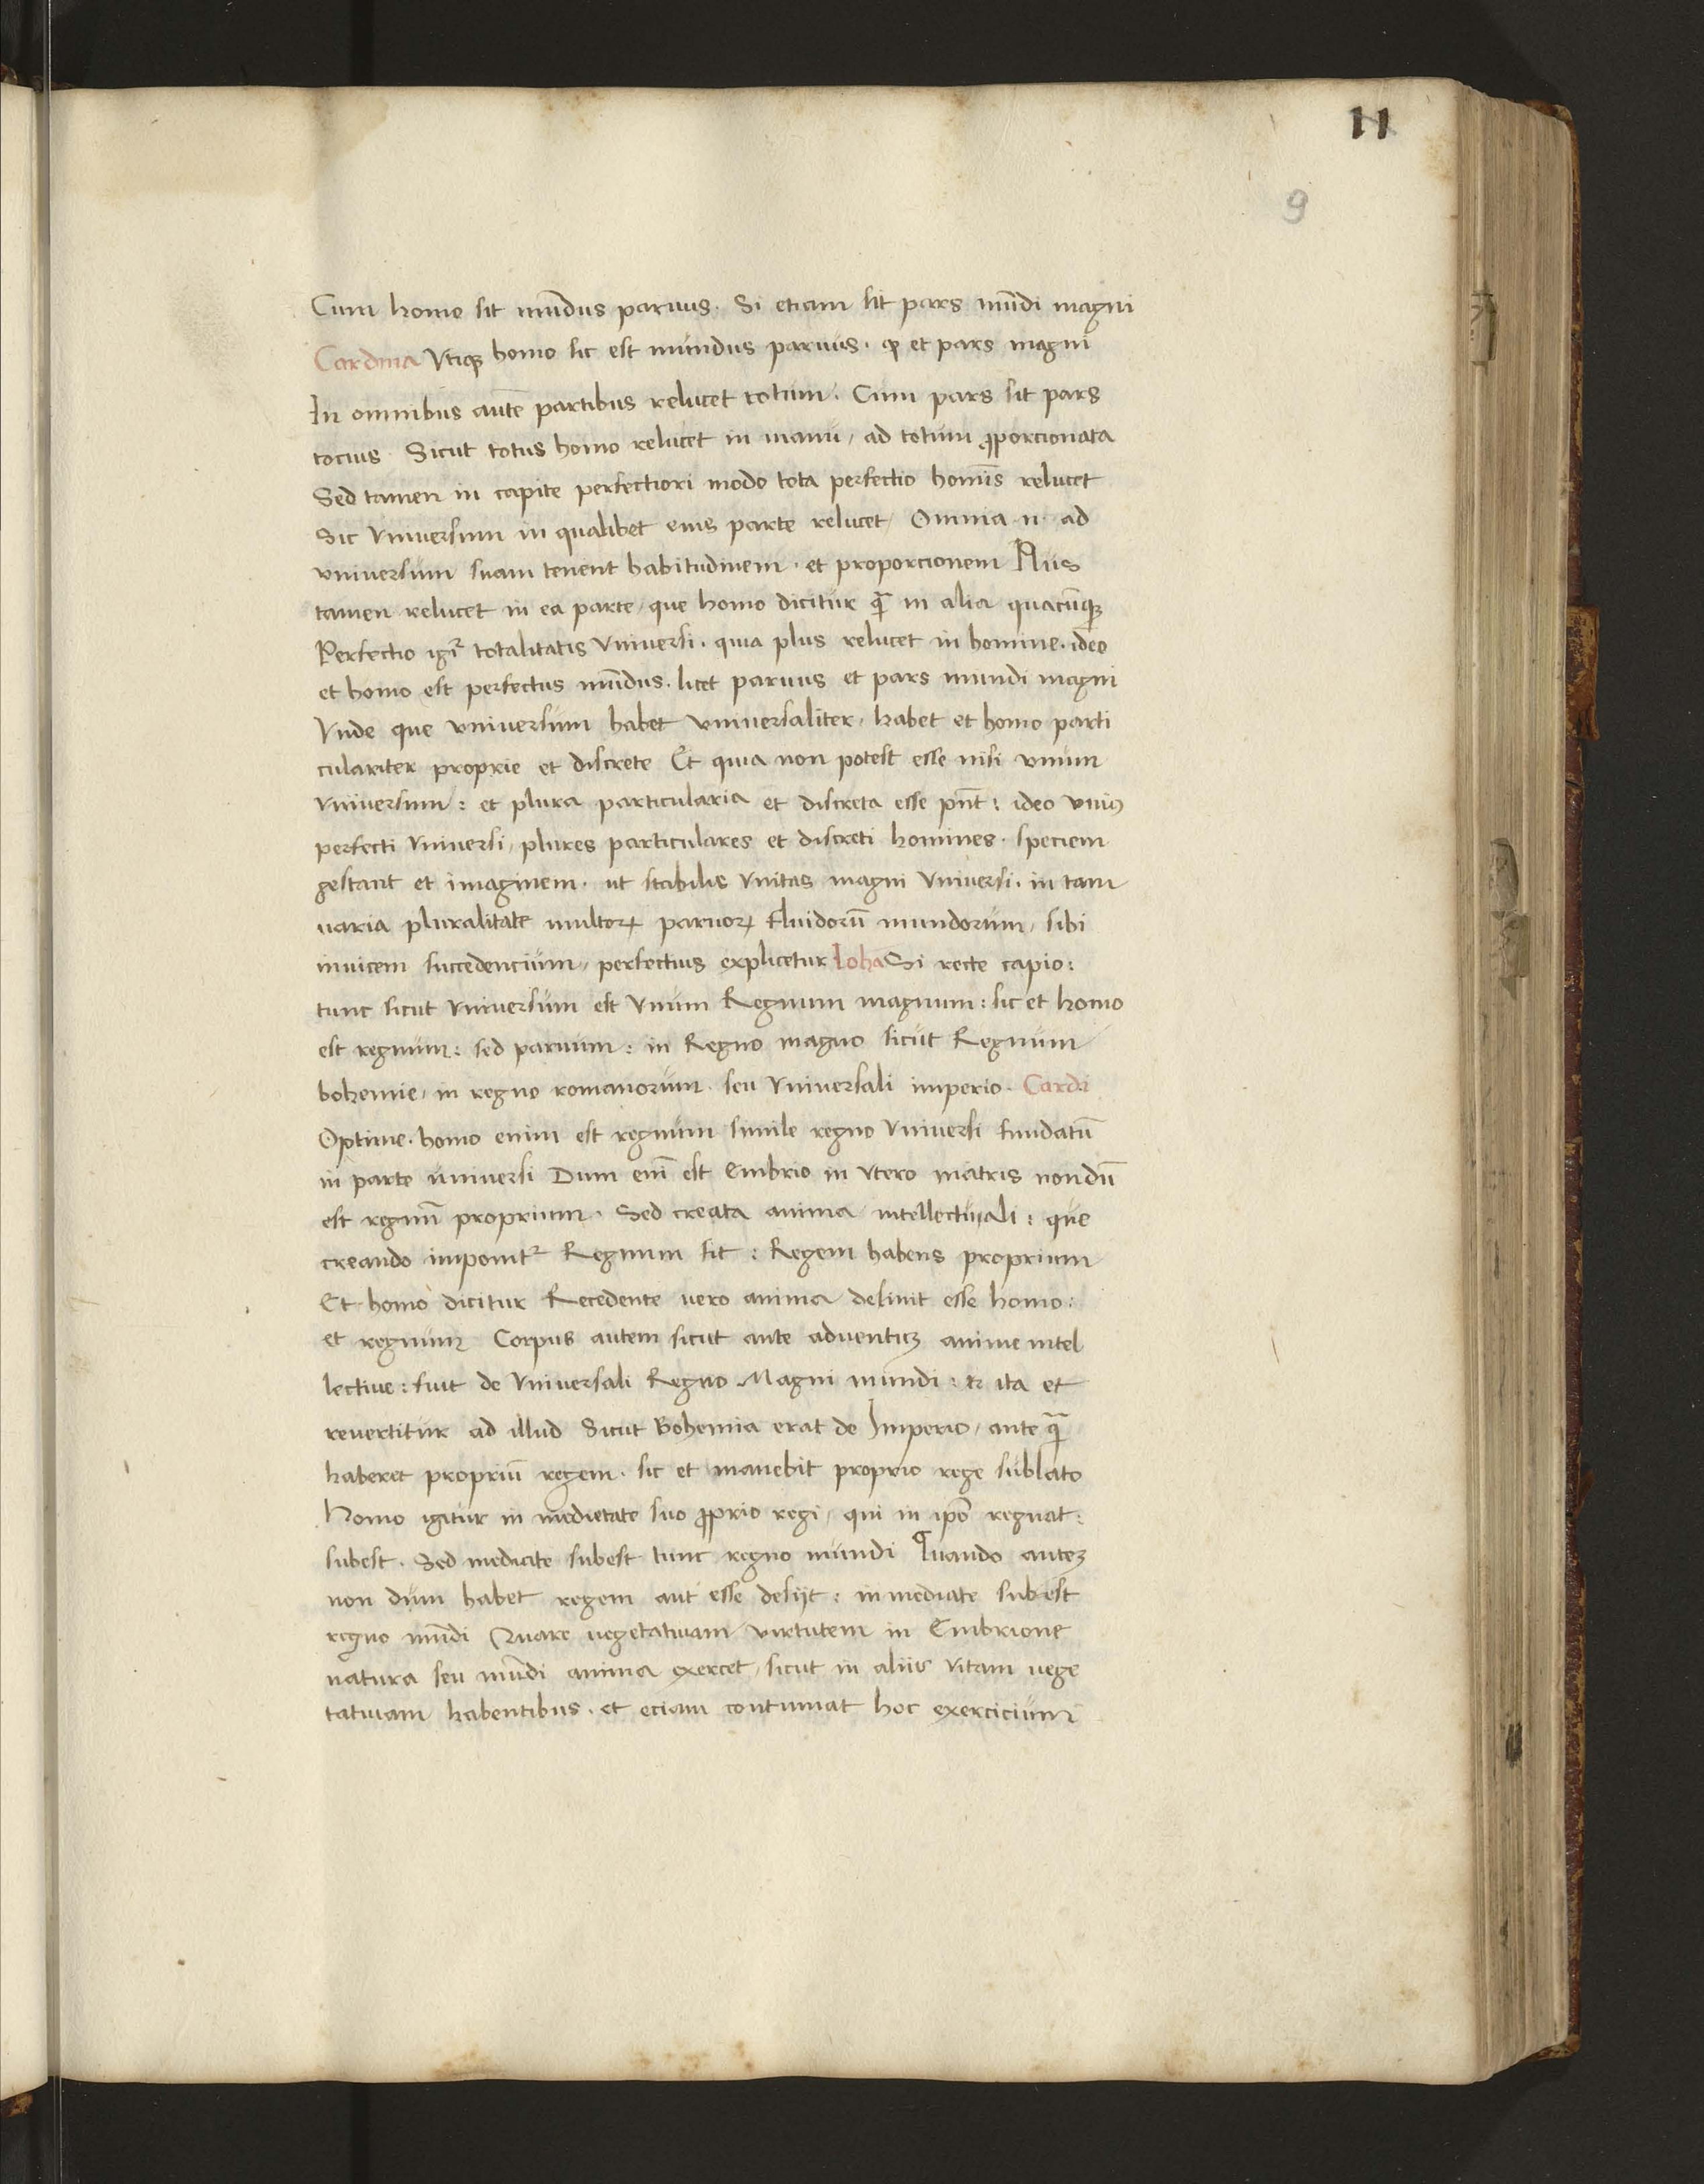 11
9
Cum homo sit mūdus paruus. Si etiam sit pars mūdi magni
Cardina Vtiqꝫ homo sic est mundus paruus. ꝙ et pars magni
In omnibus autē partibus relucet totum. Cum pars sit pars
tocius. Sicut totus homo relucet in manu, ad totum ꝓporcionata
Sed tamen in capite perfectiori modo tota perfectio homīs relucet
Sic Vniuersum in qualibet eius parte relucet, Omnia .n. ad
vniuersum suam tenent habitudinem. et proporcionem Plus
tamen relucet in ea parte, que homo dicitur ꝗ̄ in alia quacūqꝫ
Perfectio igiͬ totalitatis Vniuersi. quia plus relucet in homine. ideo
et homo est perfectus mūdus. licet paruus et pars mundi magni
Vnde que vniuersum habet vniuersaliter, habet et homo parti
culariter proprie et discrete Et quia non potest esse nisi vnum
Vniuersum: et plura particularia et discreta esse pn̄t: ideo vniꝰ
perfecti Vniuersi, plures particulares et discreti homines. speciem
gestant et imaginem. ut stabilis Vnitas magni Vniuersi. in tam
uaria pluralitate multoꝝ paruoꝝ fluidorū mundorum, sibi
inuicem succedencium, perfectius explicetur Ioha Si recte capio:
tunc sicut Vniuersum est Vnum Regnum magnum: sic et homo
est regnum: sed paruum: in Regno magno sicut Regnum
bohemie, in regno romanorum. seu Vniuersali imperio. Cardi
Optime. homo enim est regnum simile regno Vniuersi fundatū
in parte uniuersi Dum eni̅ est Embrio in Vtero matris nondū
est regnū proprium. Sed creata anima intellectuali: que
creando imponitͬ Regnum fit: Regem habens proprium
Et homo dicitur Recedente uero anima desinit esse homo:
et regnum Corpus autem sicut ante aduentuꝫ anime intel
lectiue: fuit de Vniuersali Regno Magni mundi: & ita et
reuertitur ad illud Sicut Bohemia erat de Imperio, ante ꝗ̄
haberet propriū regem. sic et manebit proprio rege sublato
Homo igitur in medietate suo ꝓprio regi, qui in ip̄o regnat:
subest. Sed mediate subest tunc regno mundi Quando auteꝫ
non dum habet regem aut esse desijt: in mediate subest
regno mūdi Quare uegetatiuam virtutem in Embrione
natura seu mūdi anima exercet, sicut in aliis Vitam uege
tatiuam habentibus. et eciam continuat hoc exercicium